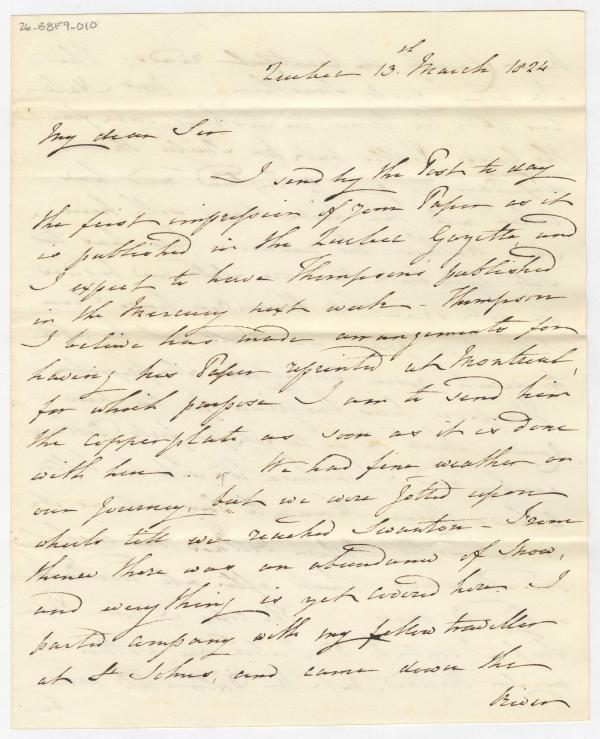 26-58F9-010
Quebec 13th March 1824
My dear Sir
I send by the Post to day
the first impression of your Paper as it
is published in the Quebec Gazette, and
I expect to have Thompson's published
in the Mercury next week - Thompson
I believe has made arrangements for
having his Paper reprinted at Montreal,
for which purpose I am to send him
the copperplate as soon as it is done
with here. We had fine weather on
our Journey, but we were Jolted upon
wheels till we reached Swanton - From
thence there was an abundance of Snow,
and every thing is yet covered here. I
parted company with my fellow traveller
at St Johns, and came down the
River